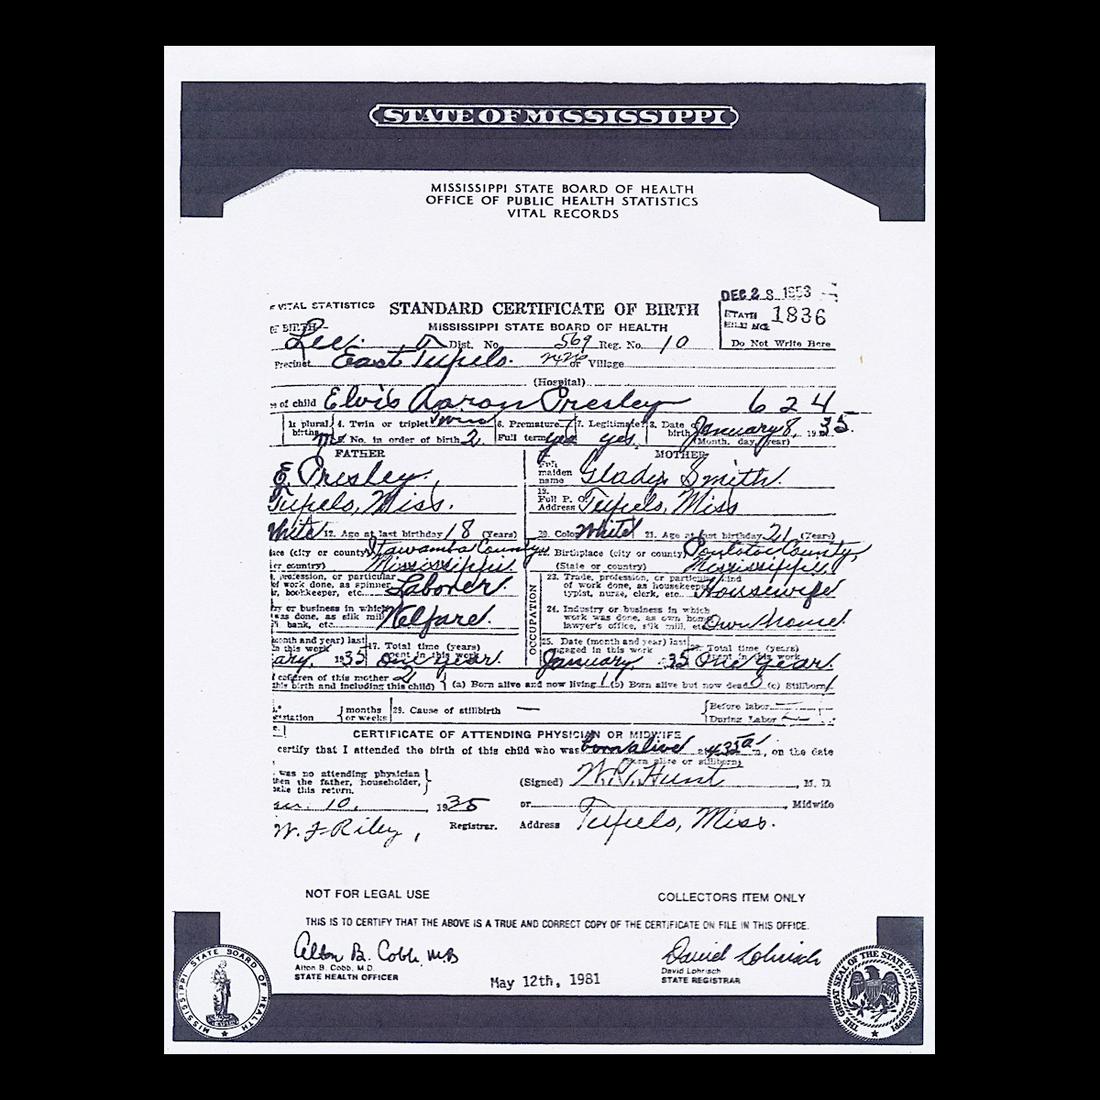 STATE OF MISSISSIPPI
MISSISSIPPI STATE BOARD OF HEALTH
OFFICE OF PUBLIC HEALTH STATISTICS
VITAL RECORDS
VITAL STATISTICS STANDARD CERTIFICATE OF BIRTH DEC 2 8 1953
MISSISSIPPI STATE BOARD OF HEALTH STATE FILE NO. 1836
OF BIRTH— Lee. Dist. No. 569 Reg. No. 10 Do Not Write Here
Precinct East Tupelo. or Village
(Hospital)
of child Elvis Aaron Presley 624
If plural births 4. Twin or triplet Twins 6. Premature 7. Legitimate? 8. Date of birth January 8, 1935.
No. in order of birth 2 Full term yes yes (Month, day, year)
FATHER MOTHER
E Presley. Full maiden name Gladys Smith.
Tupelo, Miss. 19. Full P. O. Address Tupelo, Miss
White 12. Age at last birthday 18 (Years) 20. Color White 21. Age at last birthday 21 (Years)
(city or county) Itawamba County Birthplace (city or county) Pontotoc County,
or country) Mississippi (State or country) Mississippi
profession, or particular Laborer 23. Trade, profession, or particular kind
of work done, as spinner, of work done, as housekeeper, Housewife
bookkeeper, etc. typist, nurse, clerk, etc.
OCCUPATION
or business in which Welfare. 24. Industry or business in which
was done, as silk mill, work was done, as own home, Own home
bank, etc. lawyer's office, silk mill, etc.
month and year) last 17. Total time (years) 25. Date (month and year) last Total time (years)
in this work spent in this work engaged in this work spent in this work
1935 One year. January 35 One year.
children of this mother 2
this birth and including this child) (a) Born alive and now living 1 (b) Born alive but now dead 0 (c) Stillborn 1
months or weeks 29. Cause of stillbirth — Before labor
During Labor
CERTIFICATE OF ATTENDING PHYSICIAN OR MIDWIFE
certify that I attended the birth of this child who was born alive at 435 a m, on the date
(Born alive or stillborn)
was no attending physician
then the father, householder, (Signed) W.R. Hunt, M. D.
make this return.
10, 1935 or Midwife
W. F Riley, Registrar. Address Tupelo, Miss.
NOT FOR LEGAL USE COLLECTORS ITEM ONLY
THIS IS TO CERTIFY THAT THE ABOVE IS A TRUE AND CORRECT COPY OF THE CERTIFICATE ON FILE IN THIS OFFICE.
Alton B. Cobb, MD David Lohrisch
Alton B. Cobb, M.D. David Lohrisch
STATE HEALTH OFFICER STATE REGISTRAR
May 12th, 1981
MISSISSIPPI STATE BOARD OF HEALTH
THE GREAT SEAL OF THE STATE OF MISSISSIPPI